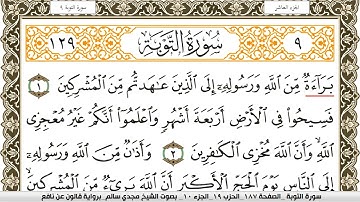 سورة التوبة ٩
الجزء العاشر
٩ سُورَةُ التَّوْبَةِ ١٢٩
بَرَآءَةٌ مِّنَ ٱللَّهِ وَرَسُولِهِۦٓ إِلَى ٱلَّذِينَ عَٰهَدتُّم مِّنَ ٱلْمُشْرِكِينَ ١
فَسِيحُوا۟ فِى ٱلْأَرْضِ أَرْبَعَةَ أَشْهُرٍ وَٱعْلَمُوٓا۟ أَنَّكُمْ غَيْرُ مُعْجِزِى
ٱللَّهِ وَأَنَّ ٱللَّهَ مُخْزِى ٱلْكَٰفِرِينَ ٢ وَأَذَٰنٌ مِّنَ ٱللَّهِ وَرَسُولِهِۦٓ
إِلَى ٱلنَّاسِ يَوْمَ ٱلْحَجِّ ٱلْأَكْبَرِ أَنَّ ٱللَّهَ بَرِىٓءٌ مِّنَ ٱلْمُشْرِكِينَ
سورة التوبة ٩ الصفحة ١٨٧ الحزب ١٩ الجزء ١٠ بصوت الشيخ مجدي سالم برواية قالون عن نافع